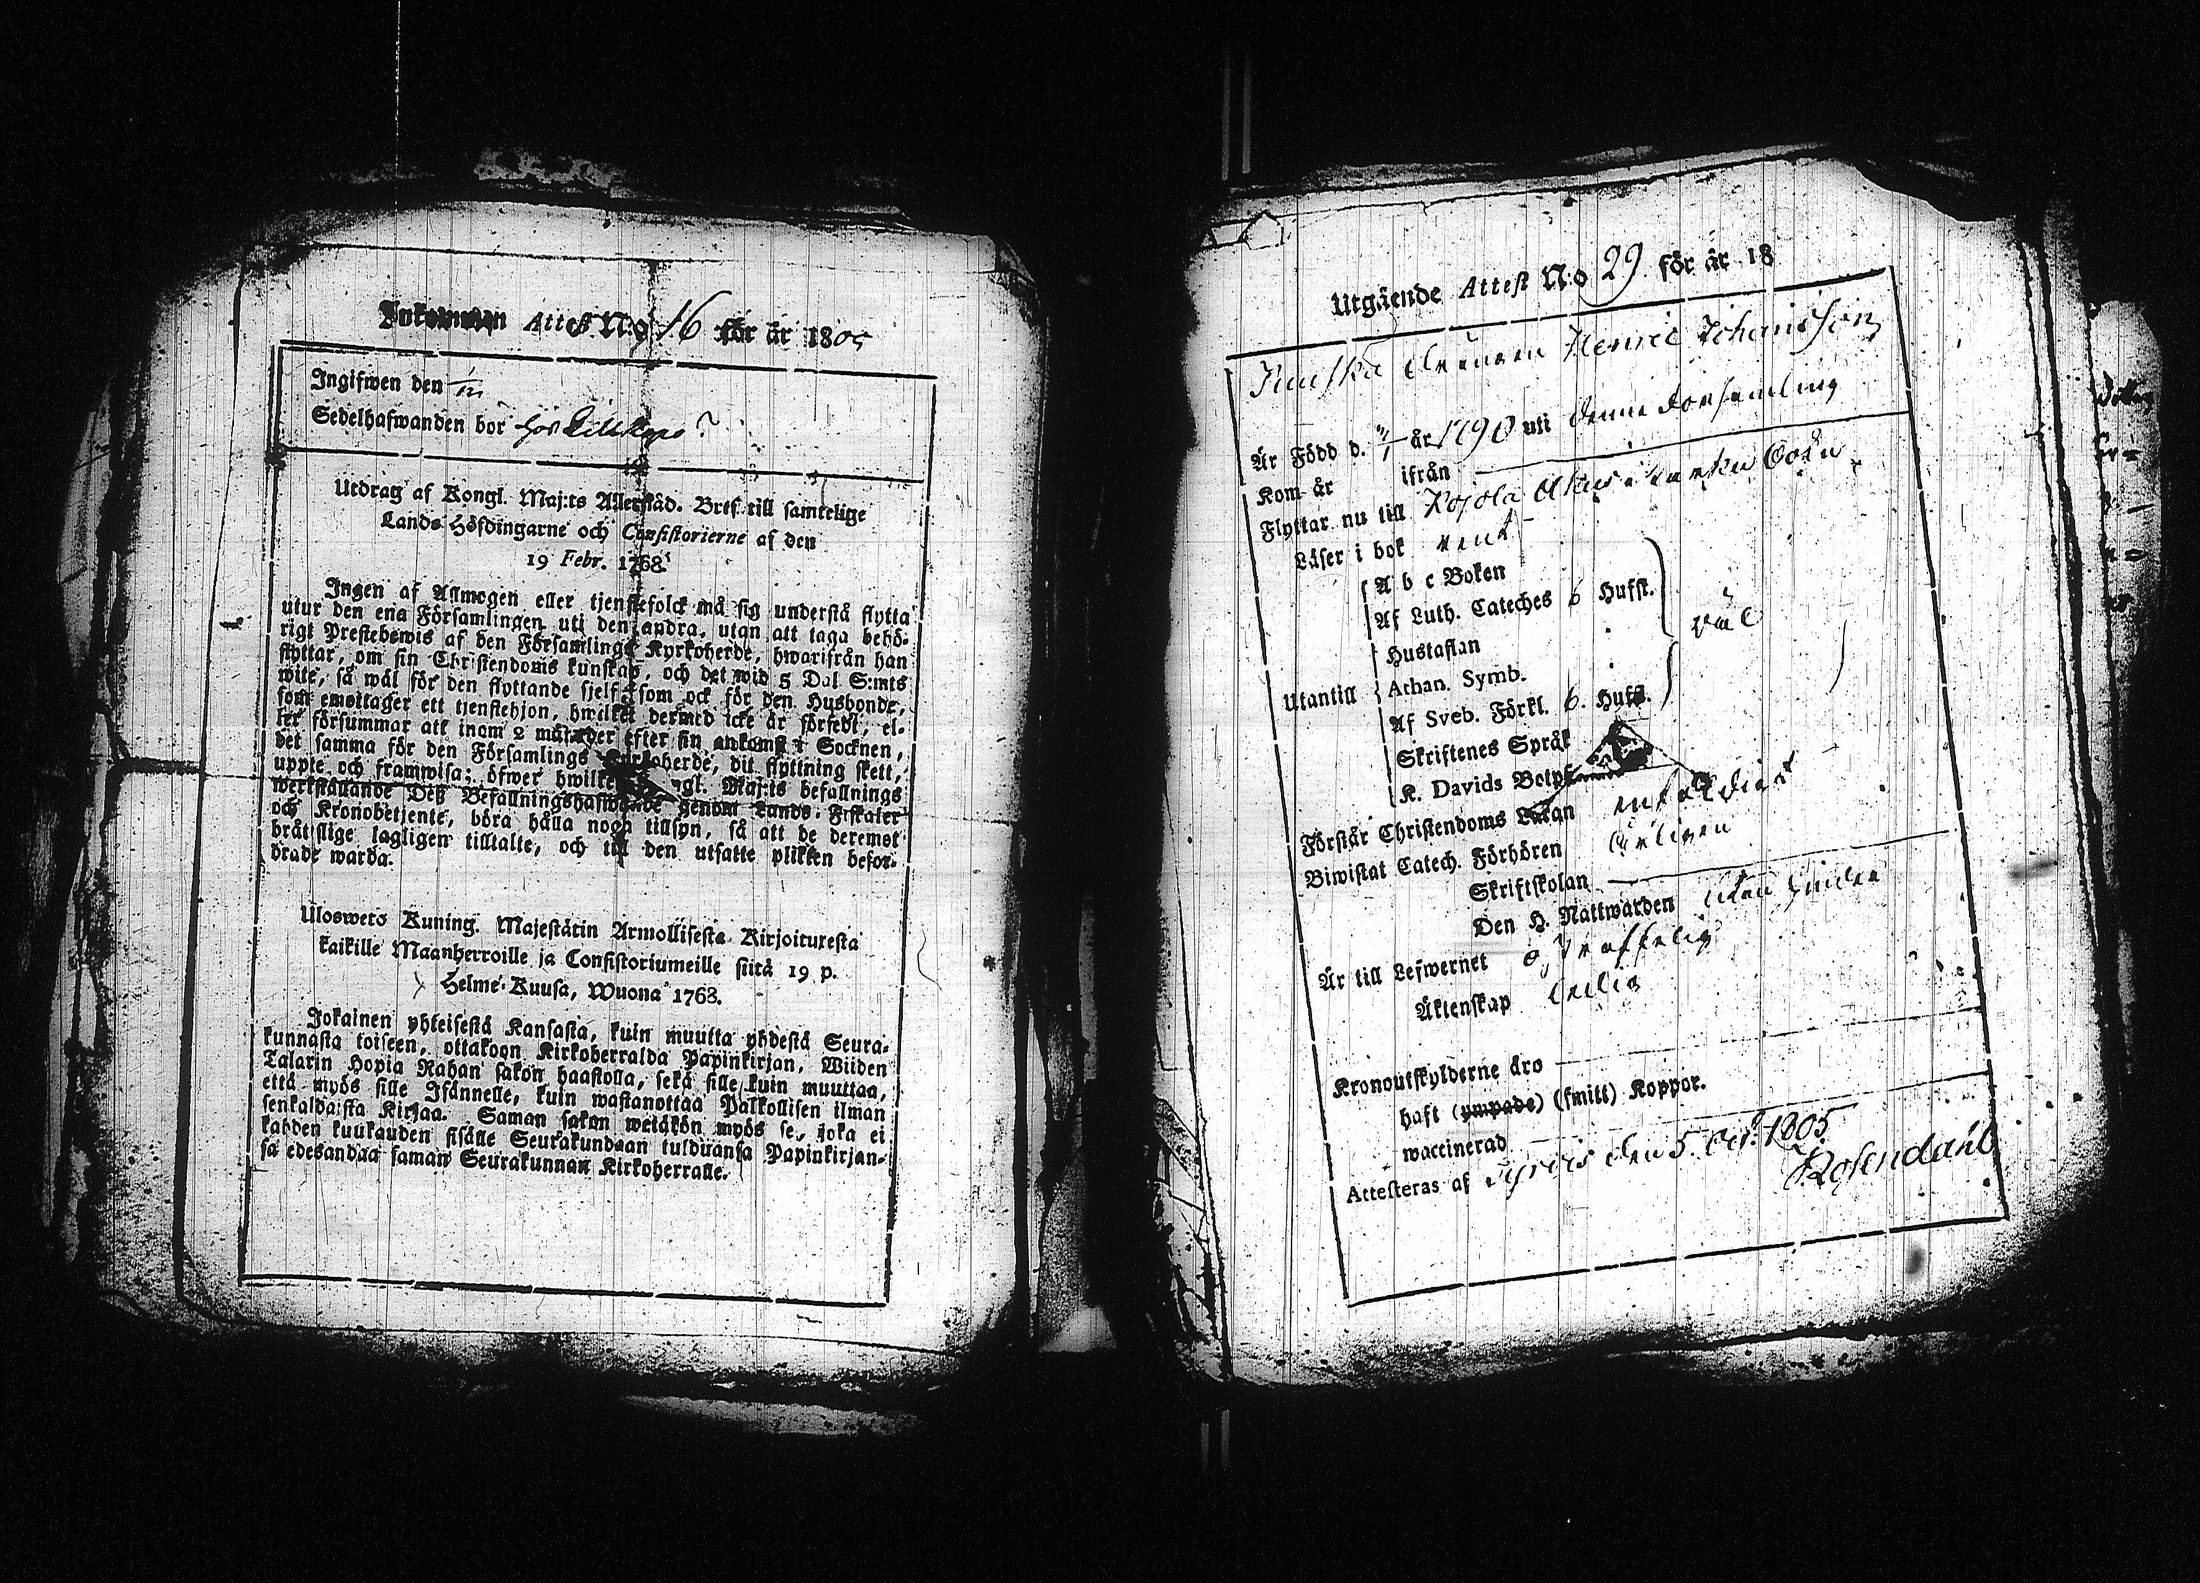 Inkommen Attest N:o 16 för år 1805
Ingifwen den
Sedelhafwanden bor hos
Utdrag af Kongl. Maj:ts Allernåd. Bref till samtelige
Lands Höfdingarne och Consistorierne af den
19 Febr. 1768.
Ingen af Allmogen eller tjenstefolck må sig understå flytta
utur den ena Församlingen uti den andra, utan att taga behö-
rigt Prestebewis af den Församlings Kyrkoherde, hwarifrån han
flyttar, om sin Christendoms kunskap, och det wid 5 Dal S:mts
wite, så wäl för den flyttande sjelf som ock för den Husbonde,
som emottager ett tjenstehjon, hwilket dermed icke är försedt, el-
ler försummar att inom 2 månader efter sin ankomst i Socknen,
det samma för den Församlings Kyrkoherde, dit flyttning skett,
uppte och framwisa; öfwer hwilket Kongl. Maj:ts befallnings
werkställande Deß Befallningshafwande genom Lands-Fiskaler
och Kronobetjente, böra hålla noga tillsyn, så att de deremot
brätslige lagligen tilltalte, och till den utsatte plikten befor-
drade warda.
Uloswets Kuning. Majestätin Armollisesta Kirjoituxesta
kaikille Maanherroille ja Consistoriumeille siitä 19 p.
Helme-Kuusa, Wuona 1768.
Jokainen yhteisestä Kansasta, kuin muutta yhdestä Seura-
kunnasta toiseen, ottakoon Kirkoherralda Papinkirjan, Wiiden
Talarin Hopia Rahan sakon haastolla, sekä sille kuin muuttaa,
että myös sille Isännelle, kuin wastanottaa Palkollisen ilman
senkaldaista Kirjaa. Saman sakon wetäkön myös se, joka ei
kahden kuukauden sisälle Seurakundaan tulduansa Papinkirjan-
sa edesandaa saman Seurakunnan Kirkoherralle.
Utgående Attest N:o 29 för år 18
Henric Johansson
Är Född d. år 1790 uti denna Församling
Kom år ifrån
Flyttar nu till Kojola
Läser i bok rent
A b c Boken
Af Luth. Cateches 6 Hufst.
Hustaflan
wäl
Utantill Athan. Symb.
Af Sveb. Förkl. 6. Hufst.
Skriftenes Språk
K. Davids Botps
Förstår Christendoms Läran enfaldigt
Biwistat Catech. Förhören årligen
Skriftskolan
Den H. Nattwarden utan hinder
Är till Lefwernet ostraffelig
Äktenskap ledig
Kronoutskylderne äro
haft (ympade) (smitt) Koppor.
waccinerad
Attesteras af den 5 Oct. 1805
Rosendahl